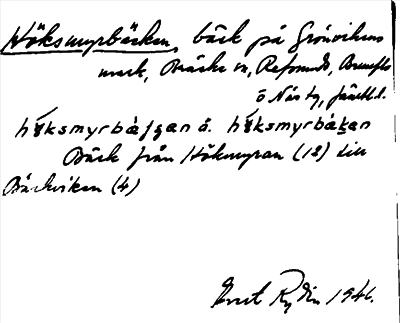 Höksmyrbäcken, bäck på Grönvikens
mark, Bräcke sn, Refsunds, Brunflo
o Näs tg, Jämtl. l.
hǿksmyrbàʃʒan å. hǿksmyrbàtʒan
Bäck från Hökmyran (12) till
Bäckviken (4)
Evert Rydin 1946.